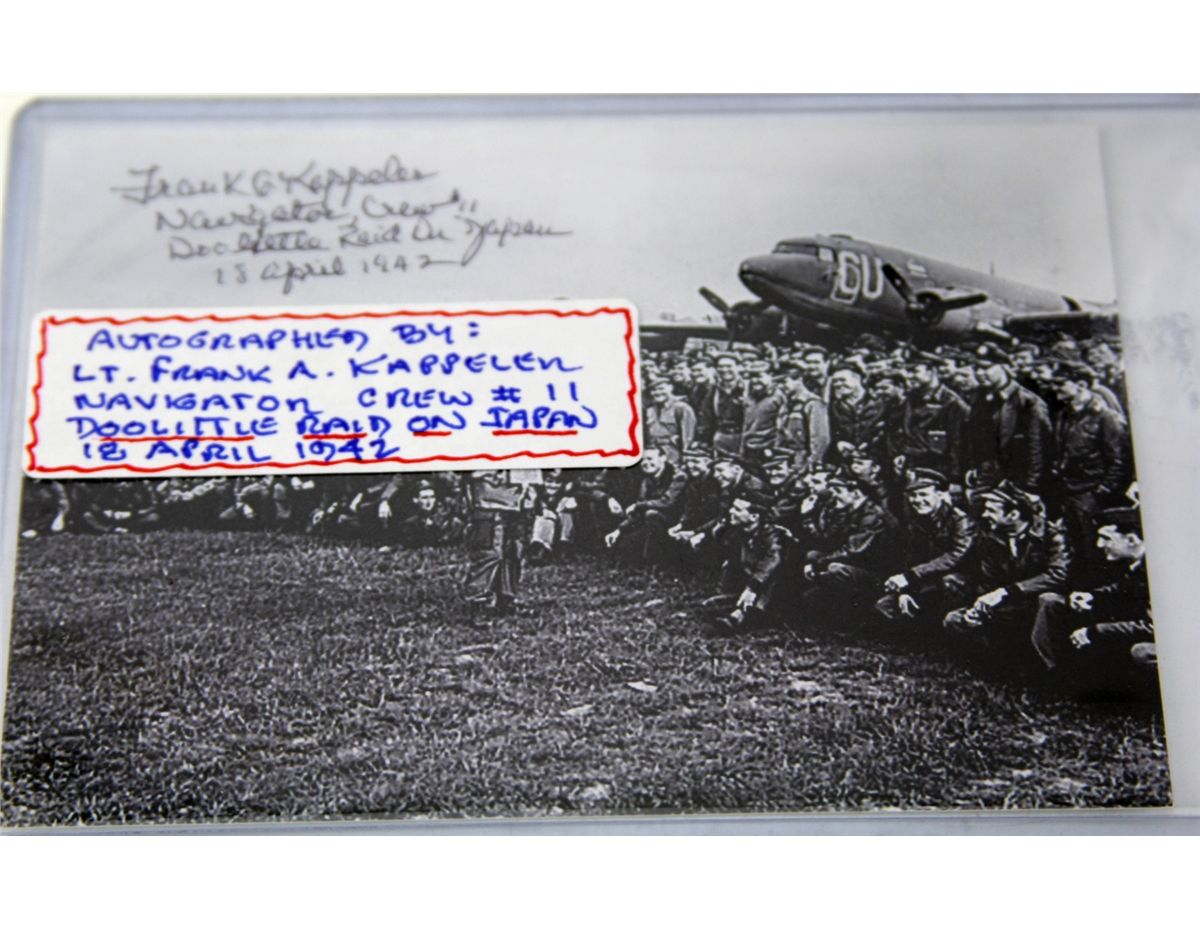 Frank A Kappeler
Navigator, Crew #11
Doolittle Raid On Japan
18 April 1942
GU
AUTOGRAPHED BY:
LT. FRANK A. KAPPELER
NAVIGATOR CREW # 11
DOOLITTLE RAID ON JAPAN
18 APRIL 1942